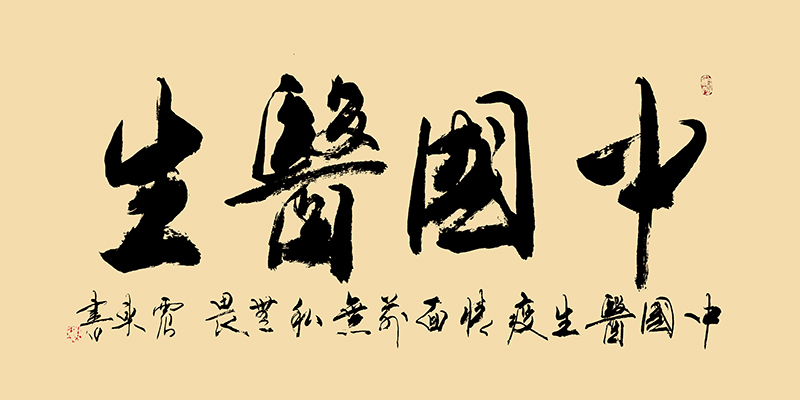 中國醫生
中國醫生疫情面前無私無畏 震東書